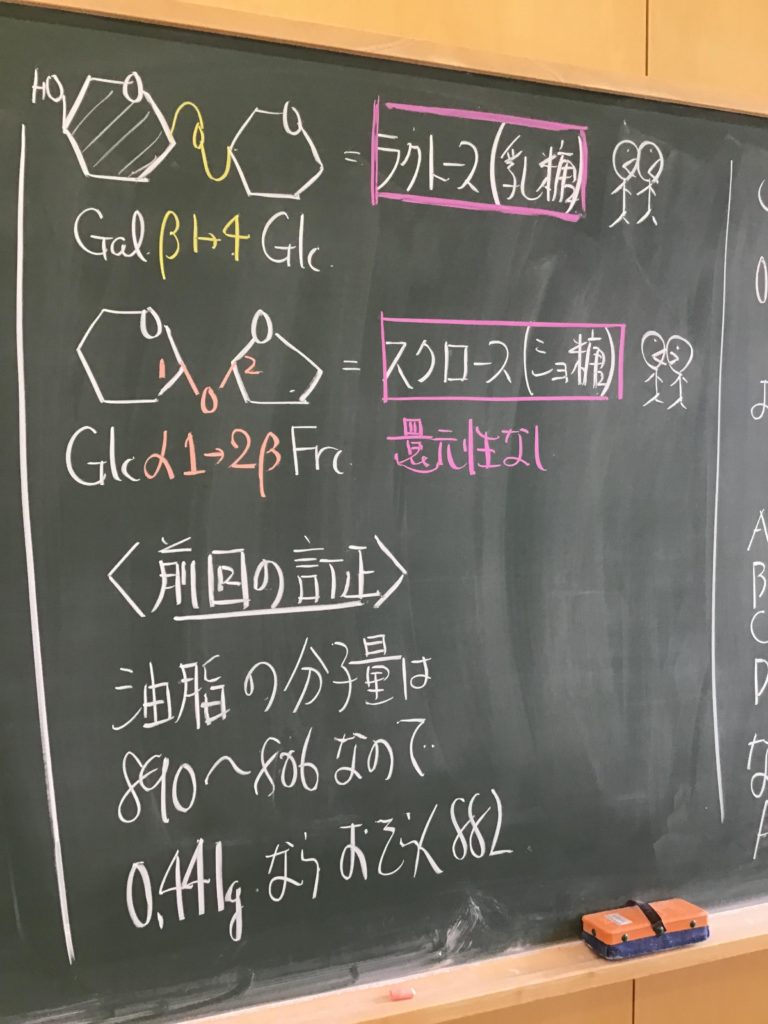 HO O O = ラクトース(乳糖)
Gal β1→4 Glc
O 1 O 2 O = スクロース(ショ糖)
Glc α1→2β Frc 還元性なし
<前回の訂正>
油脂の分子量は
890~806なので
0.441g ならおそらく 882
A
B
C
D
な
A